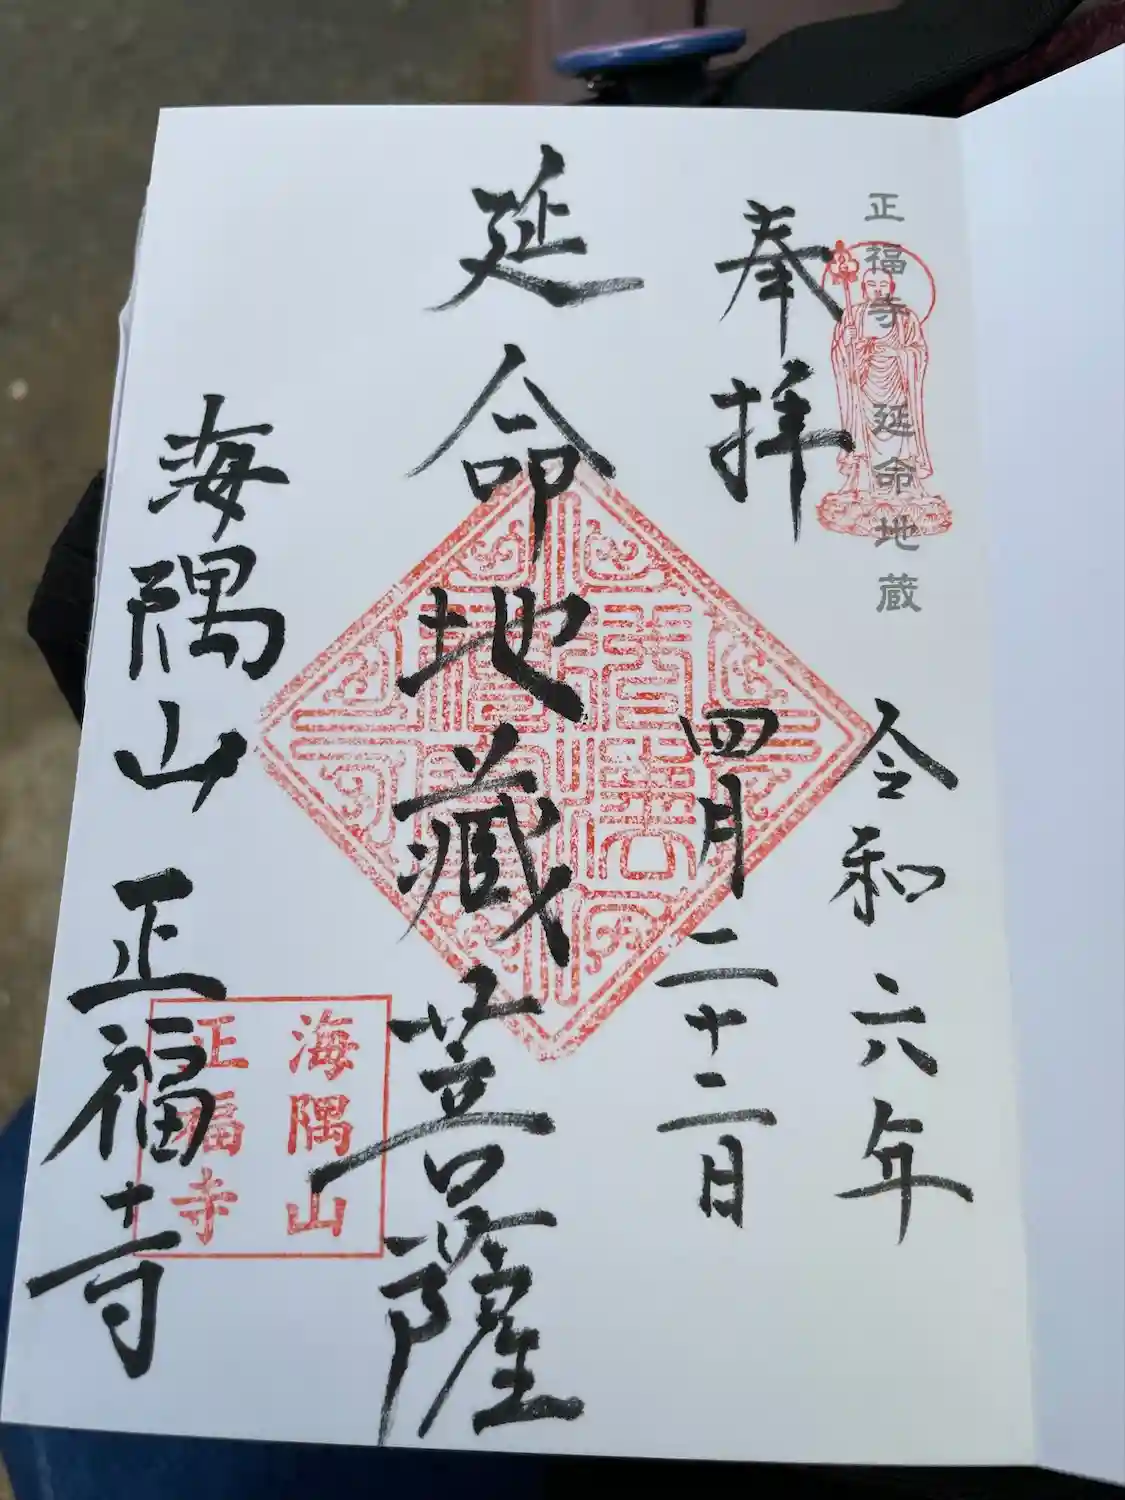 正福寺 延命地蔵
奉拝
令和六年
四月二十二日
延命地藏菩薩
海隅山 正福寺
海隅山
正福寺